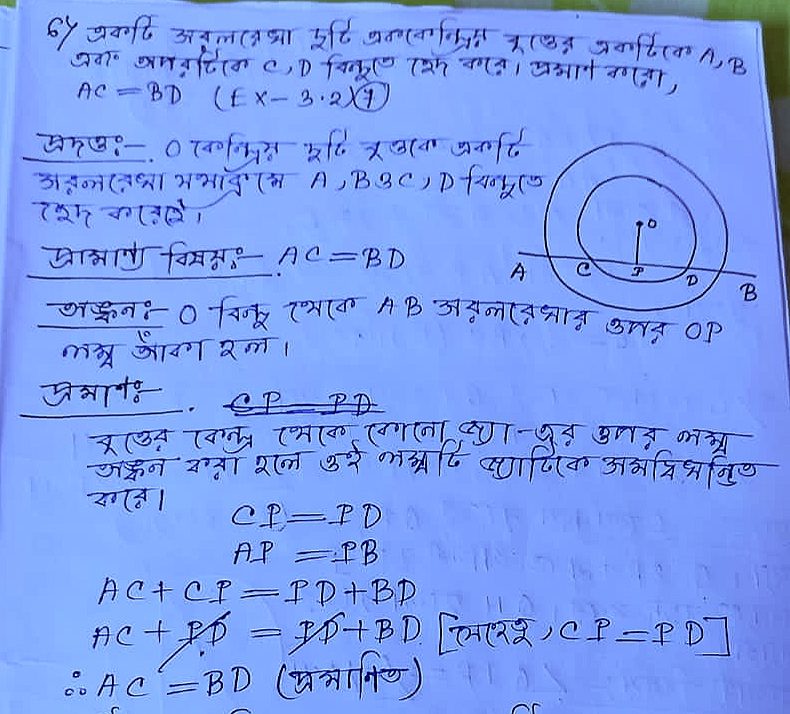 6) একটি সরলরেখা দুটি এককেন্দ্রিয় বৃত্তের একটিকে A, B
এবং অপরটিকে C, D বিন্দুতে ছেদ করে। প্রমাণ করো,
AC = BD (Ex - 3.2) 7
প্রদত্ত:- O কেন্দ্রিয় দুটি বৃত্তকে একটি
সরলরেখা যথাক্রমে A, B ও C, D বিন্দুতে
ছেদ করেছে।
প্রামাণ্য বিষয়:- AC = BD
অঙ্কন:- O বিন্দু থেকে AB সরলরেখার ওপর OP
লম্ব আঁকা হল।
প্রমাণ:- CP = PD
বৃত্তের কেন্দ্র থেকে কোনো জ্যা-এর ওপর লম্ব
অঙ্কন করা হলে ওই লম্বটি জ্যাটিকে সমদ্বিখন্ডিত
করে।
CP = PD
AP = PB
AC + CP = PD + BD
AC + PD = PD + BD [যেহেতু, CP = PD]
∴ AC = BD (প্রমাণিত)
O
A C P D B